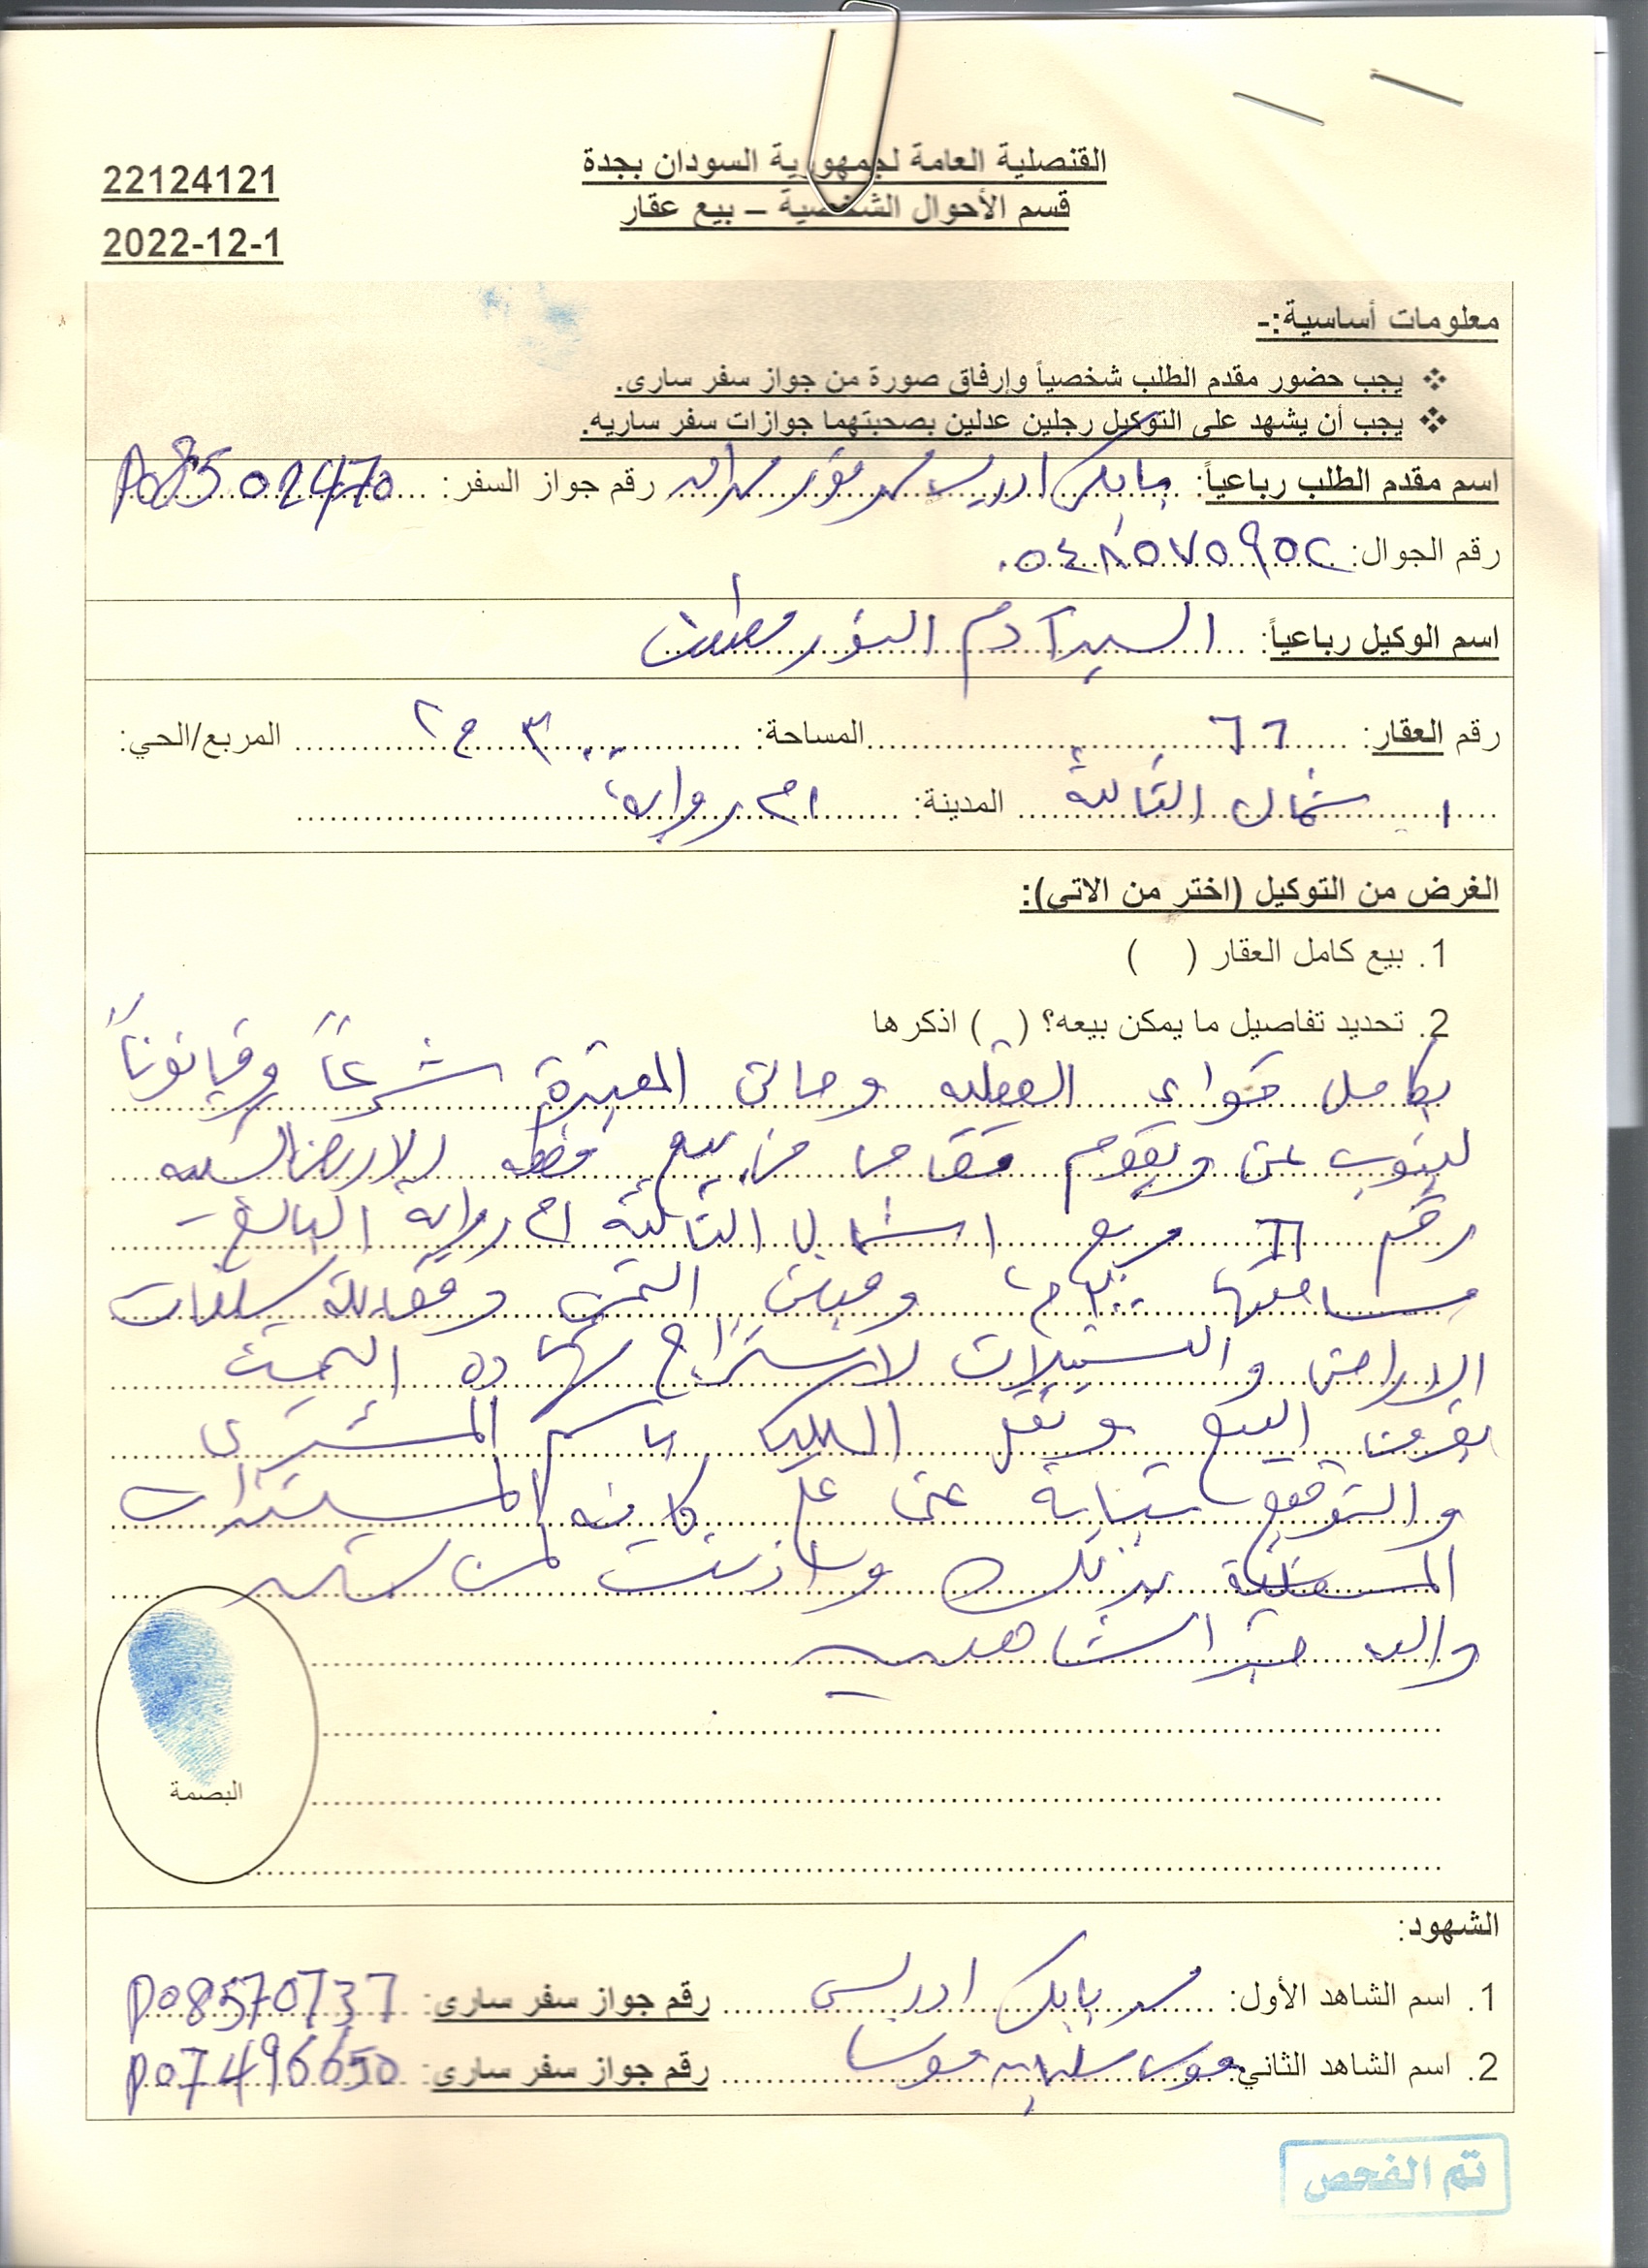 22124121
2022-12-1
القنصلية العامة لجمهورية السودان بجدة
قسم الأحوال الشخصية – بيع عقار
معلومات أساسية:-
❖ يجب حضور مقدم الطلب شخصياً وإرفاق صورة من جواز سفر سارى.
❖ يجب أن يشهد على التوكيل رجلين عدلين بصحبتهما جوازات سفر ساريه.
اسم مقدم الطلب رباعياً: بابكر ادريس رقم جواز السفر: P08502470
رقم الجوال: ٠٥٤٨٥٧٥٩٥٢
اسم الوكيل رباعياً: السيد آدم النور
رقم العقار: ٦٦ المساحة: ٣٠٠ م٢ المربع/الحي:
١ شمال الثالثة المدينة: ام روابة
الغرض من التوكيل (اختر من الاتى):
1. بيع كامل العقار ( )
2. تحديد تفاصيل ما يمكن بيعه؟ ( ) اذكرها
بكامل قواى العقليه وحالتى المعتبرة شرعاً وقانوناً
لينوب عنى ويقوم مقامى فى بيع قطعه الارض السكنيه
رقم ٦٦ مربع ١ شمال الثالثة ام روابه البالغ
مساحتها ٣٠٠م٢ وقبض الثمن ومقابلة سلطات
الاراضى والتسجيلات لاستخراج شهاده البحث
بغرض البيع ونقل الملكيه باسم المشترى
والتوقيع نيابة عنى على كافة المستندات
المتعلقة بذلك واذنت لمن يشهد
والله خير الشاهدين
البصمة
الشهود:
1. اسم الشاهد الأول: محمد بابكر ادريس رقم جواز سفر سارى: P08570737
2. اسم الشاهد الثاني: موسى سليمان موسى رقم جواز سفر سارى: P07496650
تم الفحص